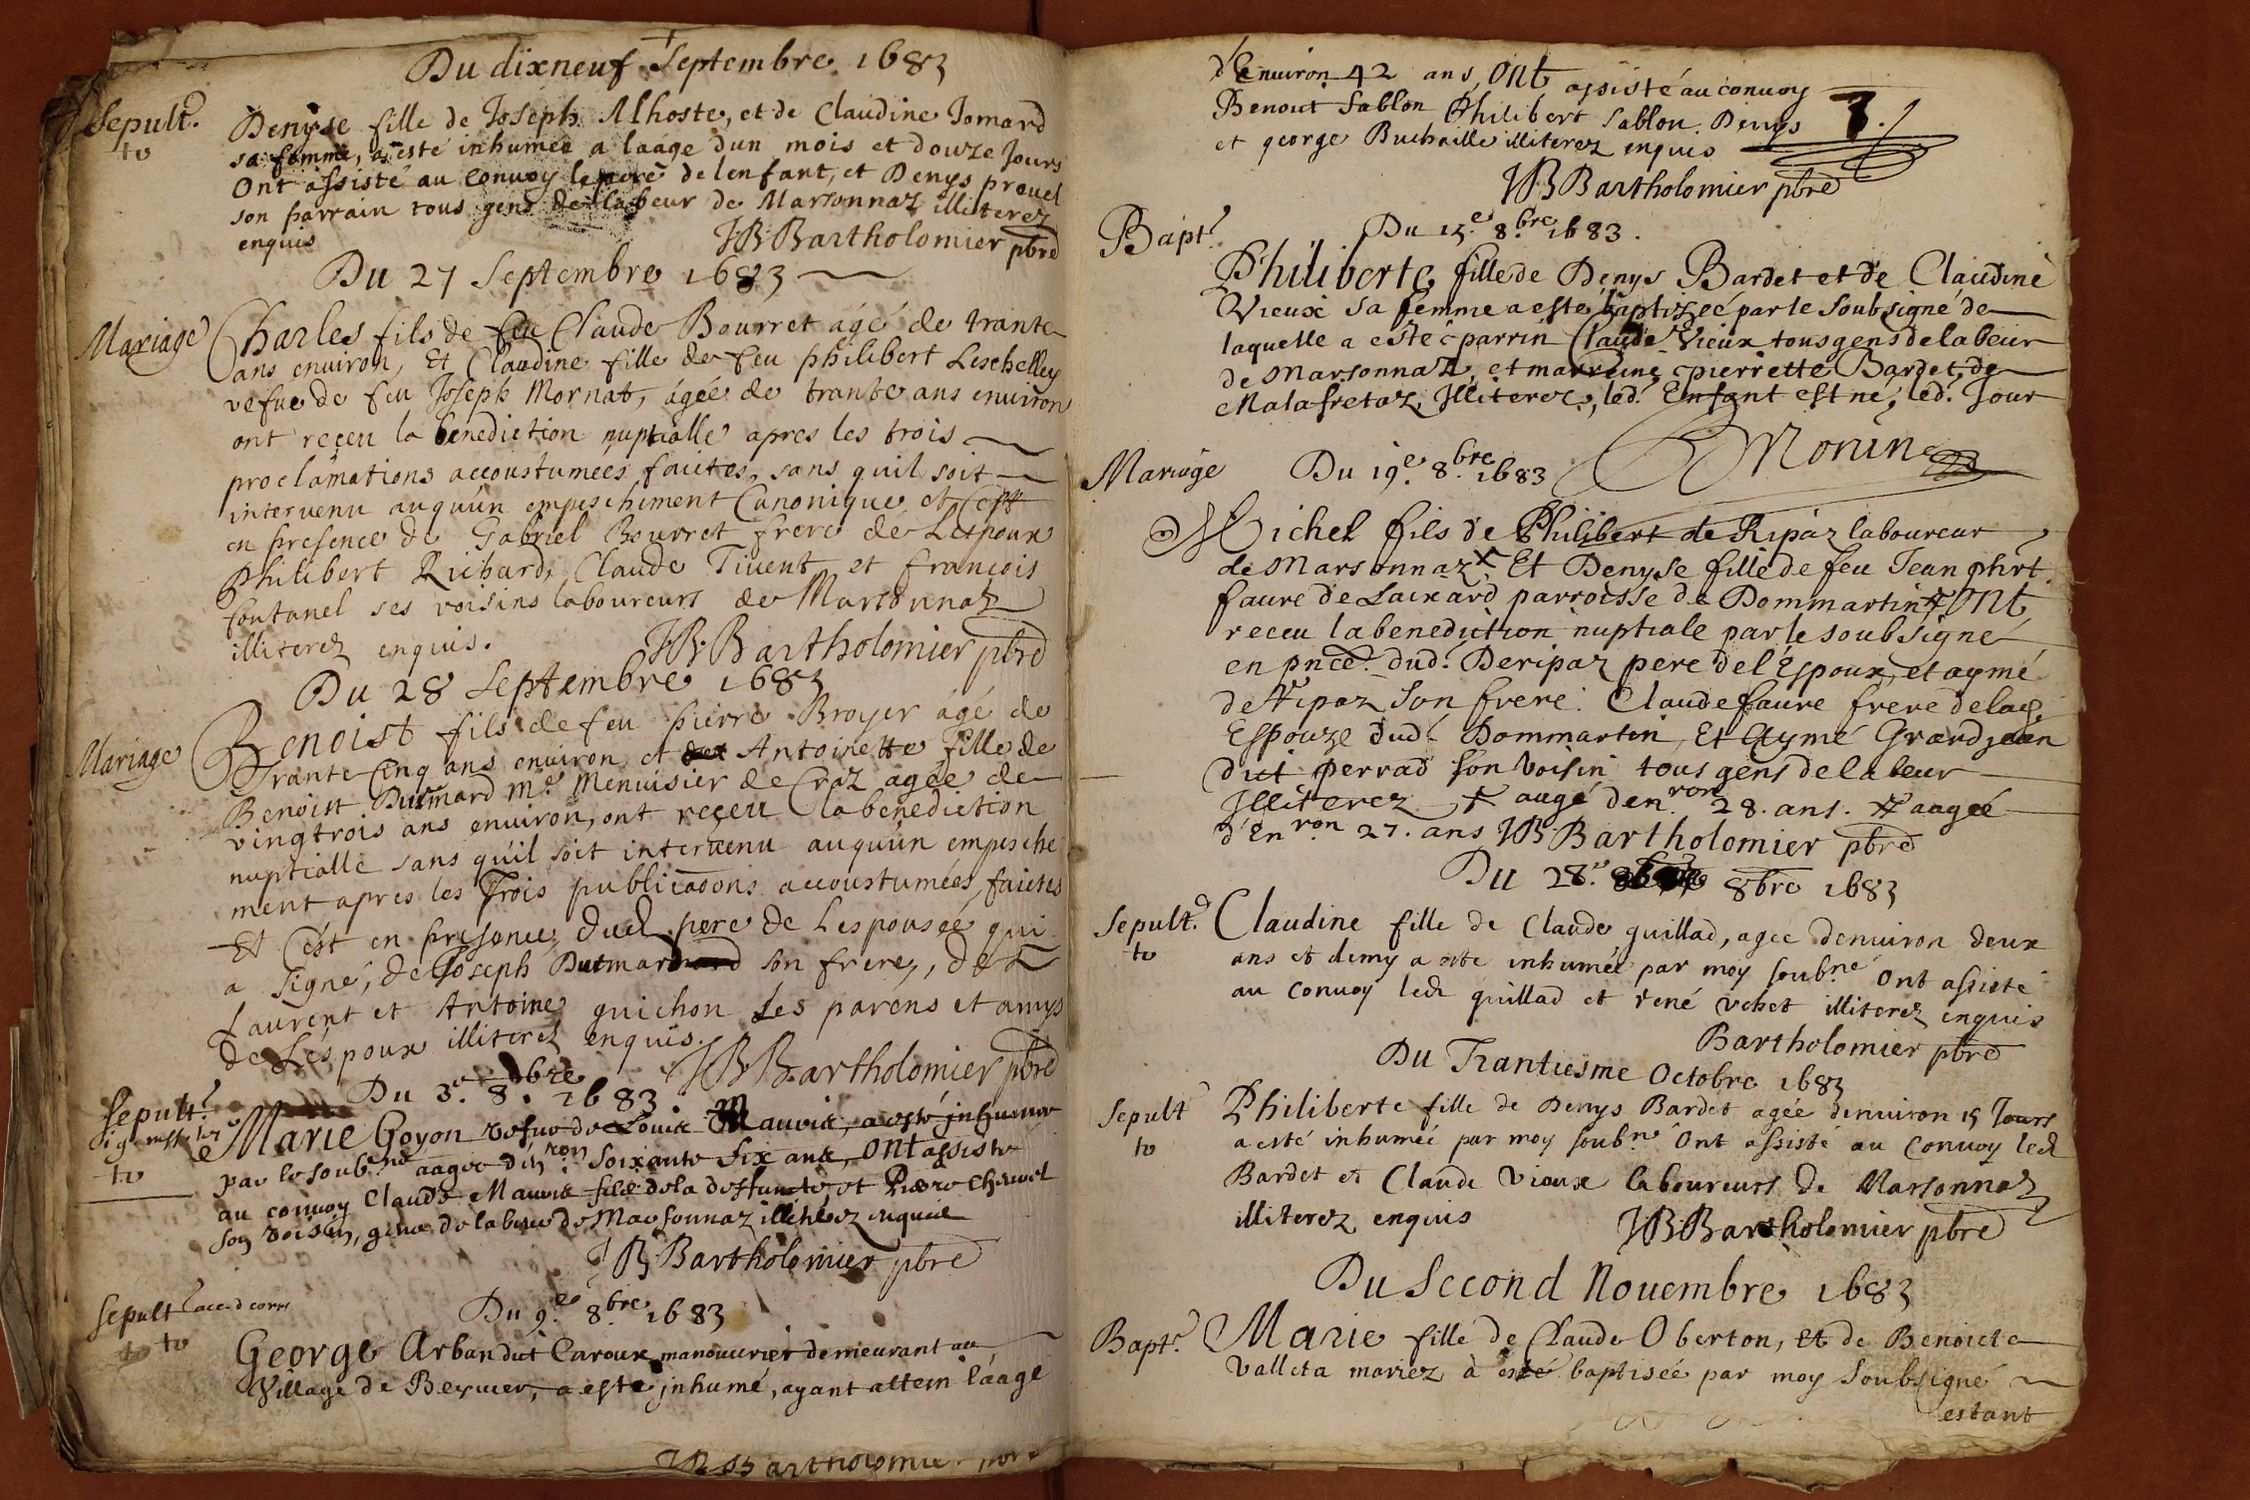 Du dixneuf Septembre 1683
Sepult.e
to
Denyse fille de Joseph Alhoste, et de Claudine Jomard
sa femme, a esté inhumée a laage dun mois et douze Jours
Ont assisté au convoy le pere de lenfant, et Denys prevel
son parrain tous gens de labeur de Marsonnaz illiterez
enquis
JB Bartholomier pbre
Du 27 Septembre 1683
Mariage
Charles fils de feu Claude Bourret agé de trante
ans environ, Et Claudine fille de feu philibert Leschelley
vefue de feu Joseph Mornat, ágée de trante ans environ
ont reçeu la benediction nuptialle apres les trois
proclamations accoustumées faites, sans quil soit
intervenu auquun empeschement Canonique et Cest
en presence de Gabriel Bourret frere de Lespoux
philibert Richard, Claude Tivent et francois
fontanel ses voisins laboureurs de Marsonnaz
illiterez enquis.
JB Bartholomier pbre
Du 28 Septembre 1683
Mariage
Benoist fils de feu pierre Broyer ágé de
Trante Cinq ans environ et Antoinette fille de
Benoist Dutmard m.e Menuisier de Craz agée de
vingtrois ans environ, ont reçeu la benediction
nuptialle sans quil soit intervenu auquun empesche
ment apres les Trois publicaõons accoustumées, faictes
Et cést en presence dud. pere de Lespousée qui
a signé, de Joseph Dutmard son frere, de
Laurent et Antoine guichon Les parens et amys
de Léspoux illiterez enquis.
JB Bartholomier pbre
Du 3.e 8.bre 1683.
Sepult.e
to
Marie Goyon vefue de Louis Mauvis, a esté inhumee
par le soub.né aagee d'en.ron soixante six ans, Ont assisté
au convoy Claude Mauvis fils de la deffunte, et Piere Chevrel
son voisin, gens de labeur de Marsonnaz illiterez enquis
JB Bartholomier pbre
Sepult.e
to to
Du 9.e 8.bre 1683
George Arban dit Caroux manouvrier demeurant au
Village de Beyvier, a esté inhumé, ayant attein láage
JB Bartholomie
d'Environ 42 ans, Ont assisté au convoy
Benoit Sablon Philibert Sablon. Denys
et george Buchaille illiterez enquis
JB Bartholomier pbre
Bapt.e
Du 15.e 8.bre 1683.
Philiberte fille de Denys Bardet et de Claudine
Vieux sa femme a esté baptizeé par le soubsigné de
laquelle a esté parrin Claude Vieux tous gens de labeur
de Marsonnaz, et marreine pierrette Bardet, de
Malafretaz, Illiterez, led. Enfant est né, led. Jour
Monin
Mariage
Du 19.e 8.bre 1683
Michel fils de Philibert de Ripaz laboureur
de Marsonnaz Et Denyse fille de feu Jean phrt
faure de Laixard parroisse de Dommartin Ont
receu la benediction nuptiale par le soubsigné
en pnce. dud. Deripaz pere de l'Espoux, et aymé
de Ripaz son frere. Claude faure frere de lad.
Espouze dud. Dommartin, Et Aymé Grandjean
dict perrad son Voisin tous gens de labeur
Illiterez aagé den.ron 28. ans. aageé
d'En.ron 27. ans JB Bartholomier pbre
Du 28.e 8bre 1683
Sepult.e
to
Claudine fille de Claude guillad, agee denviron deux
ans et demy a esté inhumée par moy soub.né Ont assisté
au convoy led. guillad et rené vehet illiterez enquis
Bartholomier pbre
Du Trantiesme Octobre 1683
Sepult
to
Philiberte fille de Denys Bardet agée denviron 15 Jours
a esté inhumée par moy soub.né Ont assisté au convoy led.
Bardet et Claude Vieux laboureurs de Marsonnaz
illiterez enquis
JB Bartholomier pbre
Du Second Novembre 1683
Bapt.e
Marie fille de Claude Oberton, Et de Benoicte
Valleta mariez à esté baptisée par moy Soubsigné
estant